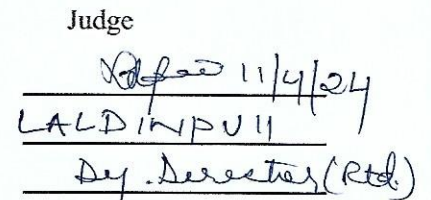 Judge
11/4/24
LALDINPUII
Dy. Director (Rtd.)